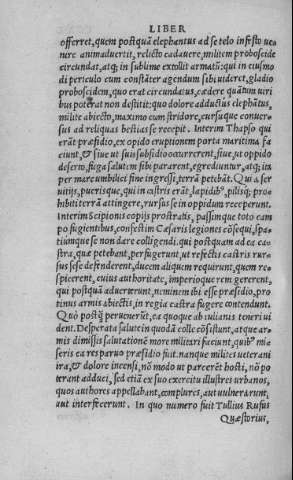 LIBER
offerret, quem postquā elephantus ad se telo infesto ue
nire animaduertit, relicto cadauere, militem proboscide
circundat, atq; in sublime extollit armatū: qui in eiusmo
di periculo cum constāter agendum sibi uideret, gladio
proboscidem, quo erat circundatus, cædere quātum uiri
bus poterat non destitit: quo dolore adductus elephātus,
milite abiecto, maximo cum stridore, cursuque conuer-
sus ad reliquas bestias se recepit. Interim Thapso qui
erāt præsidio, ex opido eruptionem porta maritima fa
ciunt, & siue ut suis subsidio occurrerent, siue, ut oppido
deserto, fuga salutem sibi pararent, egrediuntur, atq; ita
per mare umbilici fine ingressi, terrā petebāt. Qui a ser
uitijs, puerisque, qui in castris erāt, lapidibꝰ, pilisq; pro=
hibiti terrā attingere, rursus se in oppidum receperunt.
Interim Scipionis copijs prostratis, passimque toto cam
po fugientibus, confestim Cæsaris legiones cōsequi, spa
tiumque se non dare colligendi. qui postquam ad ea ca=
stra, quæ petebant, perfugerunt, ut refectis castris rur=
sus sese defenderent, ducem aliquem requirunt, quem re=
spicerent, cuius authoritate, imperioque rem gererent,
qui postquā aduerterunt, neminem ibi esse præsidio, pro
tinus armis abiectis, in regia castra fugere contendunt.
Quò postq̄ peruenerūt, ea quoque ab iulianis teneri ui
dent. Desperata salute in quodā colle cōsistunt, atque ar=
mis dimissis salutationē more militari faciunt. quibꝰ mi
seris ea res paruo præsidio fuit. nanque milites ueterani
ira, & dolore incensi, nō modo ut parcerēt hosti, nō po
terant adduci, sed etiā ex suo exercitu illustres urbanos,
quos authores appellabant, complures, aut uulnerarunt,
aut interfecerunt. In quo numero fuit Tullius Rufus
Quæstorius,